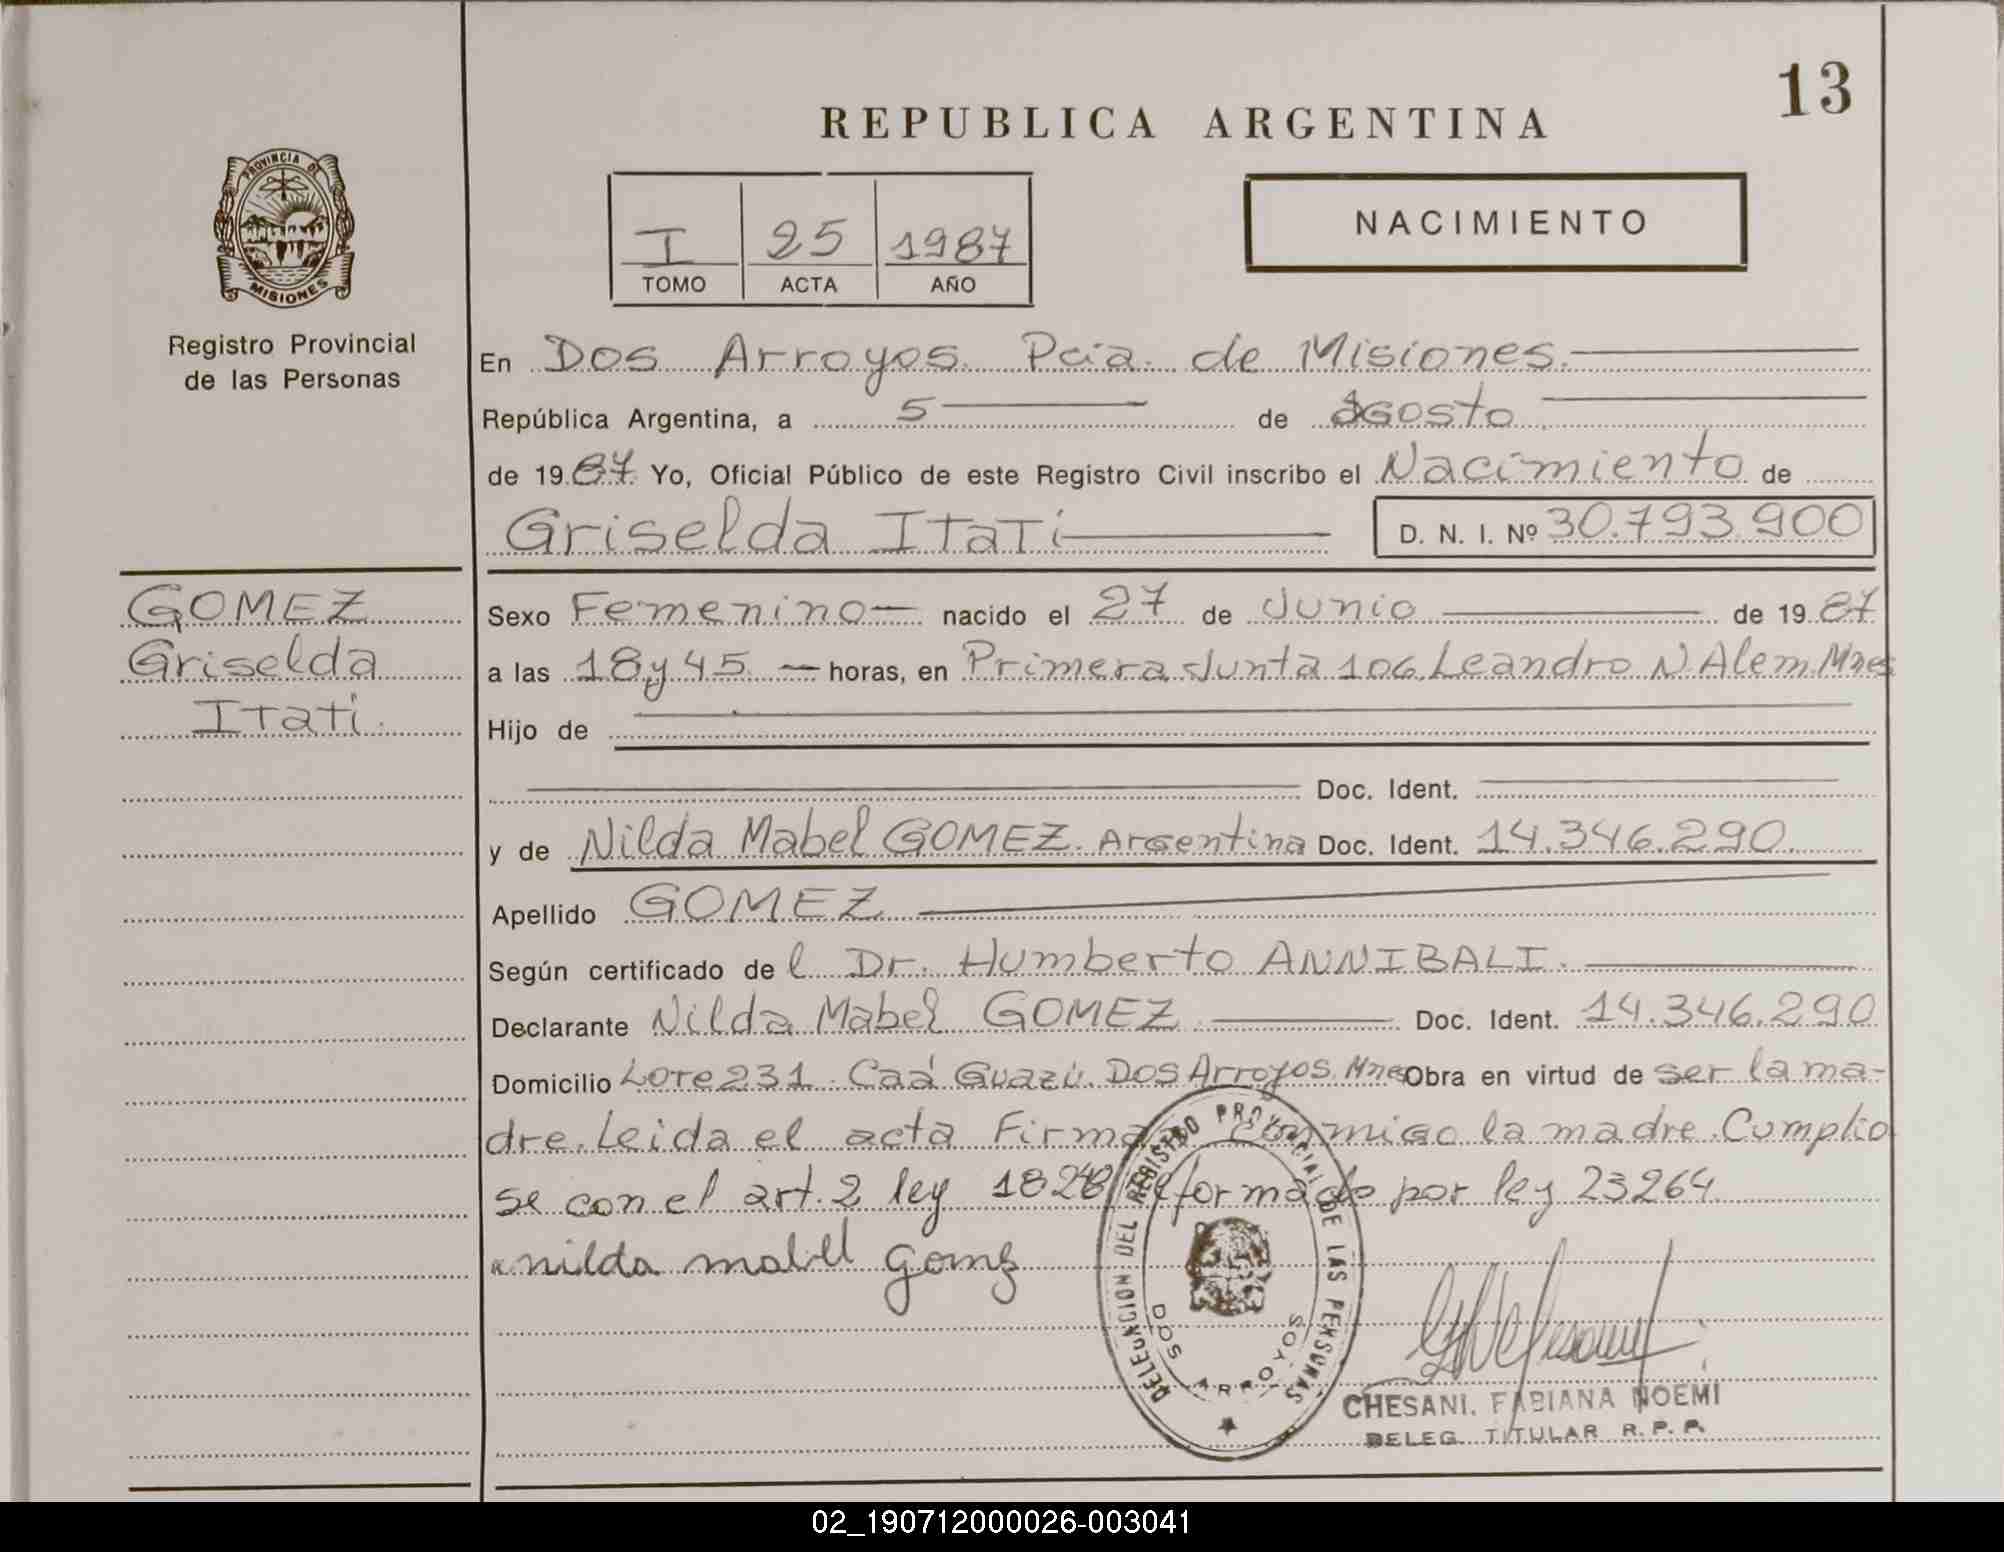 13
REPUBLICA ARGENTINA
PROVINCIA DE
MISIONES
Registro Provincial
de las Personas
I 25 1987
TOMO ACTA AÑO
NACIMIENTO
En Dos Arroyos. Pcia. de Misiones.
República Argentina, a 5 de Agosto
de 1987. Yo, Oficial Público de este Registro Civil inscribo el Nacimiento de
Griselda Itatí D. N. I. Nº 30.793.900
GOMEZ
Griselda
Itatí.
Sexo Femenino nacido el 27 de Junio de 1987
a las 18 y 45 horas, en Primera Junta 106. Leandro N Alem. Mnes
Hijo de
Doc. Ident.
y de Nilda Mabel GOMEZ. Argentina Doc. Ident. 14.346.290.
Apellido GOMEZ
Según certificado de l Dr. Humberto ANNIBALI.
Declarante Nilda Mabel GOMEZ Doc. Ident. 14.346.290
Domicilio Lote 231. Caá Guazú. Dos Arroyos. Mnes Obra en virtud de ser la ma-
dre. Leída el acta Firma conmigo la madre. Cumplio
se con el art. 2 ley 18248 reformado por ley 23264
nilda mabel gomez
DELEGACION DEL REGISTRO PROVINCIAL DE LAS PERSONAS
DOS ARROYOS
CHESANI, FABIANA NOEMI
DELEG. TITULAR R. P. P.
02_190712000026-003041